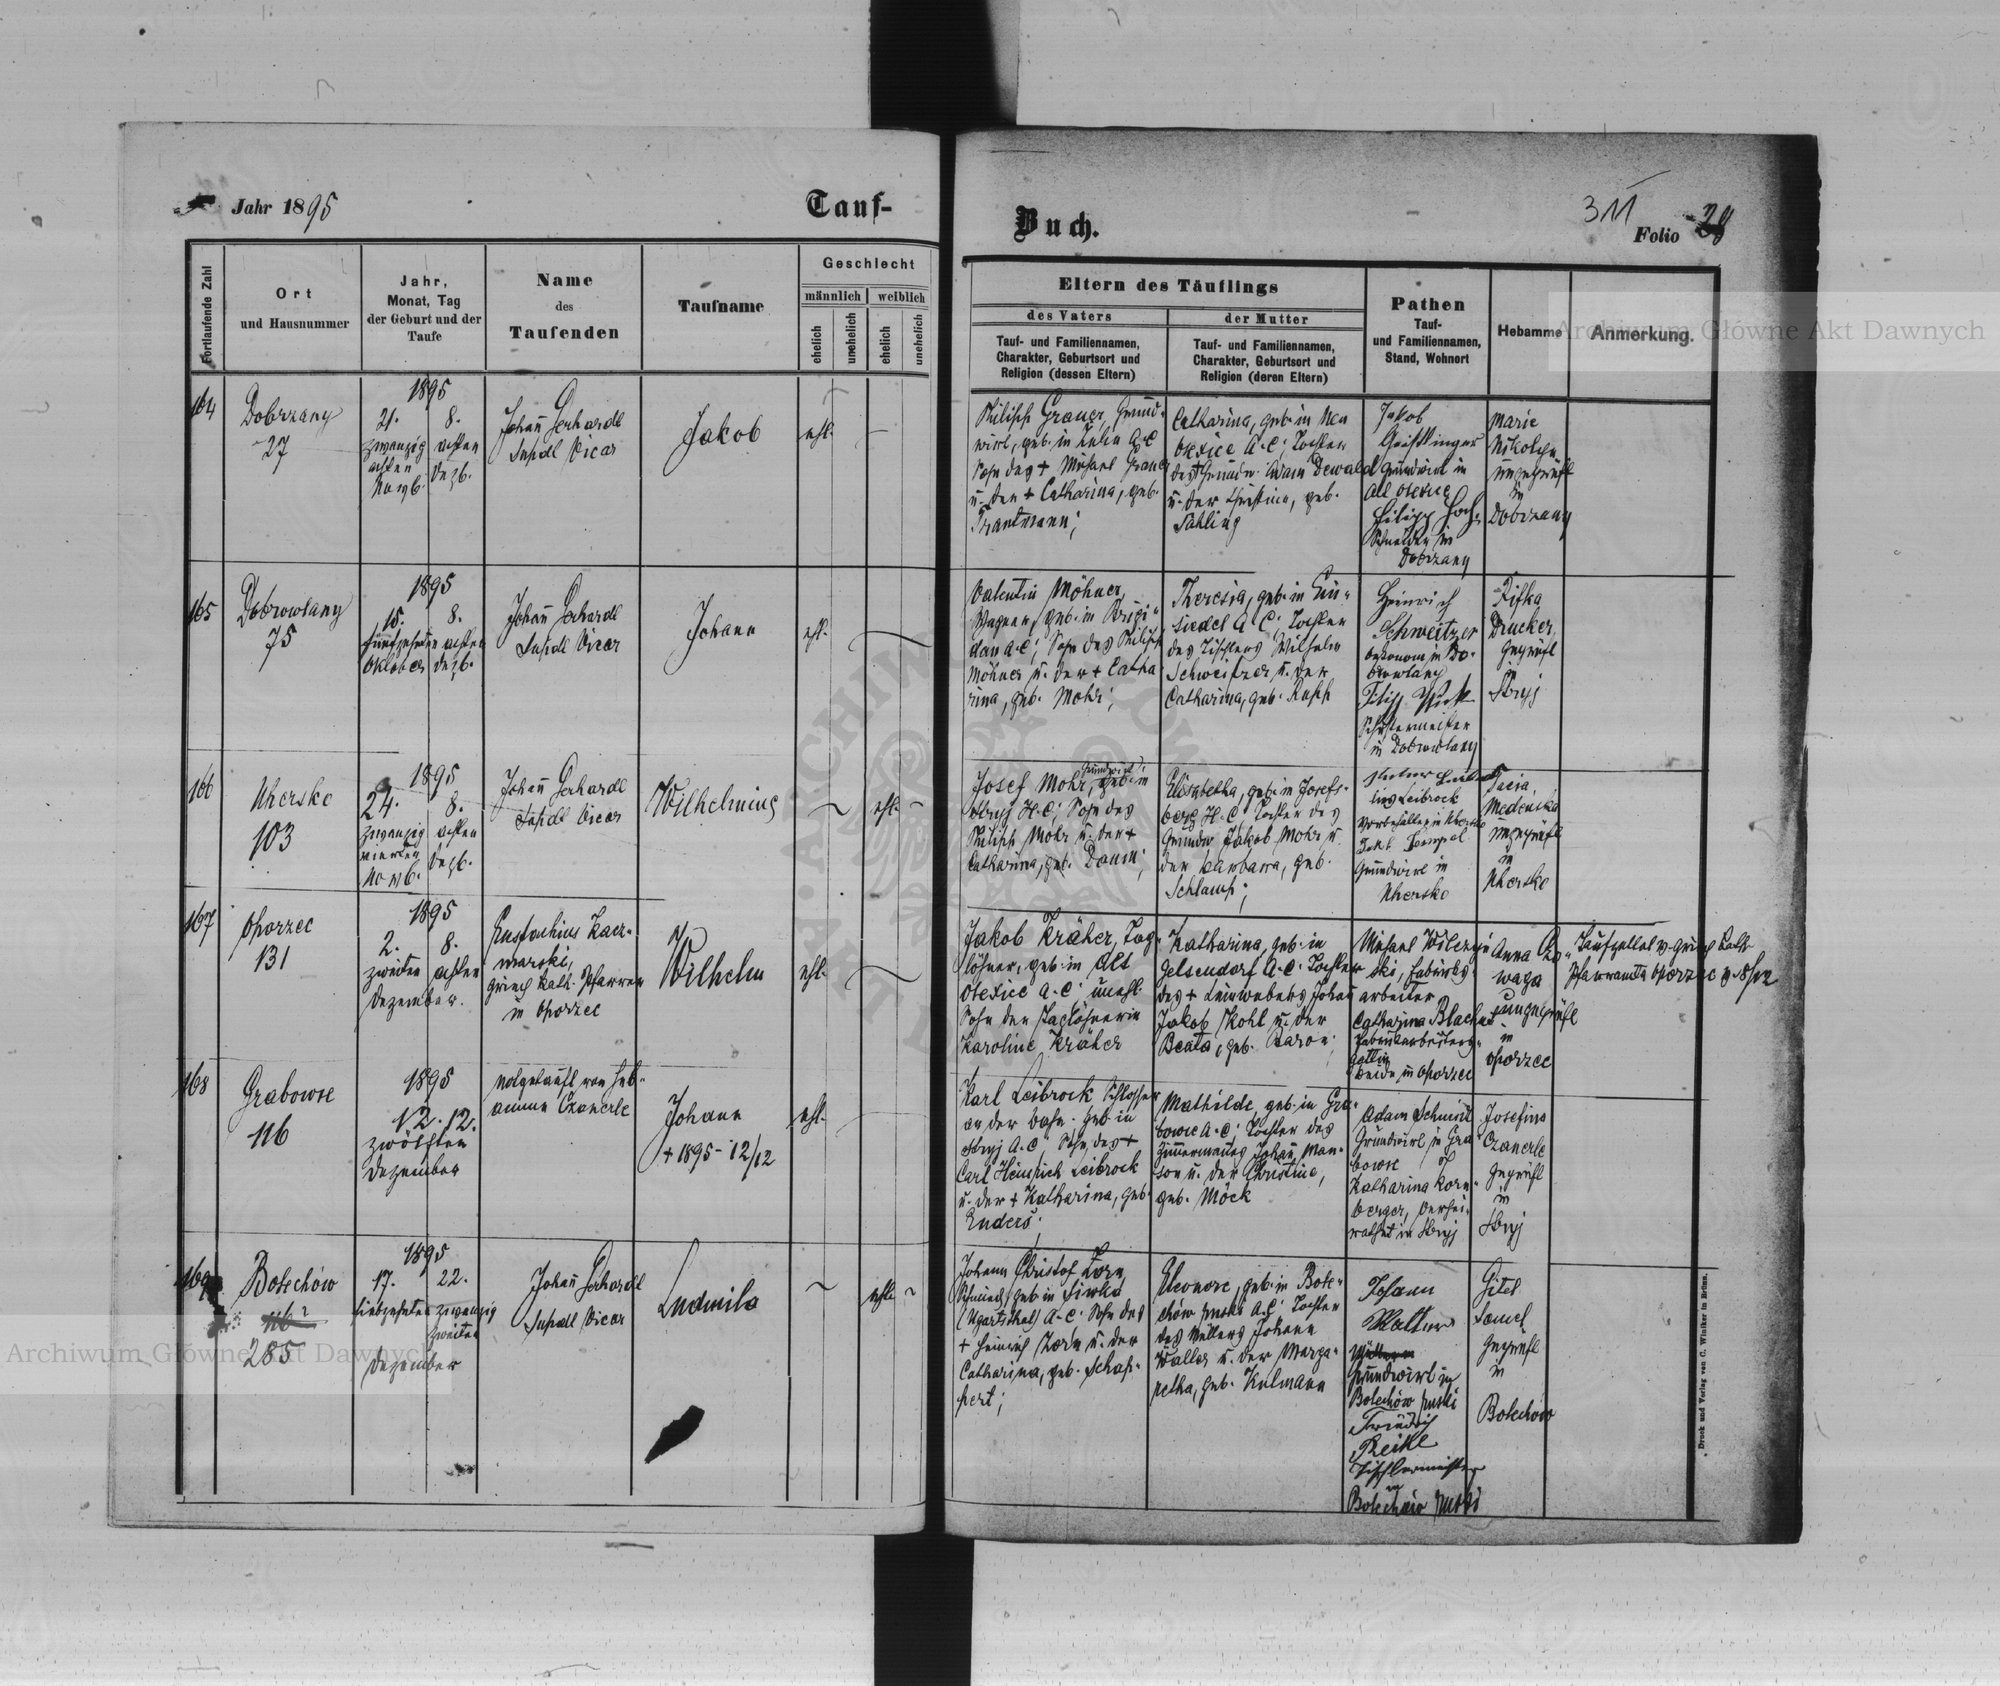 Jahr 1895
Tauf-
Buch.
311
Folio 28
Fortlaufende Zahl
Ort
und Hausnummer
Jahr,
Monat, Tag
der Geburt und der
Taufe
Name
des
Taufenden
Taufname
Geschlecht
männlich
weiblich
ehelich
unehelich
ehelich
unehelich
Eltern des Täuflings
des Vaters
Tauf- und Familiennamen,
Charakter, Geburtsort und
Religion (dessen Eltern)
der Mutter
Tauf- und Familiennamen,
Charakter, Geburtsort und
Religion (deren Eltern)
Pathen
Tauf-
und Familiennamen,
Stand, Wohnort
Hebamme
Anmerkung.
164
Dobrzany
27
1895
21. 8.
zwanzig achten
Novb. Dezb.
Johañ Gerhardt
Supdl Vicar
Jakob
ehl.
Philipp Grauer, Grund-
wirt, geb. in A.C
Sohn des + Michael Grauer
u. der + Catharina, geb.
Trautmann;
Catharina, geb. in Neu
Olexice A.C; Tochter
des + Grundw. Adam Dewald
u. der Christina, geb.
Jakob
Grundwirt in
Alt Olexice
Philipp
Schneider in
Dobrzany
Marie
ungeprüft
in
Dobrzany
165
Dobrowlany
75
1895
15. 8.
fünfzehnten achten
Oktober Dezb.
Johañ Gerhardt
Supdl Vicar
Johann
ehl.
Valentin Möhner,
Wagner, geb. in Brigi-
dau A.C; Sohn des Philipp
Möhner u. der + Catha-
rina, geb. Mohr;
Theresia, geb. in Ein-
siedel A.C; Tochter
des Tischlers Wilhelm
Schweitzer u. der
Catharina, geb. Rupp
Heinrich
Schweitzer
Oekonom in Do-
browlany
Filipp
Schustermeister
in Dobrowlany
Rifka
Drucker,
geprüft
in
Stryj
166
Uhersko
103
1895
24. 8.
zwanzig achten
vierten Dezb.
Novb.
Johañ Gerhardt
Supdl Vicar
Wilhelmine
ehl.
Josef Mohr, Grundwirt, geb. in
Stryj H.C; Sohn des
Philipp Mohr u. der +
Catharina, geb. Daum;
Elisabetha, geb. in Josefs-
berg H.C Tochter des
Grundw Jakob Mohr u.
der Barbara, geb.
Schlamp;
Leibrock
in Uhersko
Grundwirt in
Uhersko
Medenska
ungeprüft
in
Uhersko
167
Oporzec
131
1895
2. 8.
zweiten achten
Dezember.
Eustachius Kacz-
marski,
griech kath. Pfarrer
in Oporzec
Wilhelm
ehl.
Jakob Kräher, Tag-
löhner, geb. in Alt
Olexice A.C; unehl.
Sohn der Taglöhnerin
Karoline Kräher
Katharina, geb. in
Gelsendorf A.C. Tochter
des + Leinwebers Johañ
Jakob Kohl u. der
Beata, geb. Baron;
Michael Wilczyń-
ski, Fabriks-
arbeiter
Catharina
Fabriksarbeiters-
gattin
beide in Oporzec
Anna
ungeprüft
in
Oporzec
Taufzettel v. griech kath.
Pfarramte Oporzec v. 8/12
168
Grabowce
116
1895
12. 12.
zwölften
Dezember
notgetauft von Heb-
amme Czanerle
Johann
+ 1895 - 12/12
ehl.
Karl Leibrock Schlosser
an der Bahn, geb. in
Stryj A.C Sohn des +
Carl Heinrich Leibrock
u. der + Katharina, geb.
Enders.
Mathilde, geb. in Gra-
bowce A.C; Tochter des
Zimmermanns Johañ Man-
son u. der Christine,
geb. Möck
Adam Schmidt
Grundwirt in Gra-
bowce
Katharina Korn-
berger, verhei-
rathet in Stryj
Josefine
Czanerle
geprüft
in
Stryj
169
Bolechów
285
1895
17. 22.
siebzehnten zwanzig
zweiten
Dezember
Johañ Gerhardt
Supdl Vicar
Ludmila
ehl.
Johann Christof Zorn
Schmied, geb in Siwka
(Ugartsthal) A.C; Sohn des
+ Heinrich Zorn u. der
Catharina, geb. Schap-
pert;
Eleonore, geb. in Bole-
chów ruski A.C; Tochter
des Müllers Johann
Walter u. der Marga-
retha, geb. Kulmann
Johann
Walter
Grundwirt in
Bolechów ruski
Friedrich
Reikl
Tischlermeister
in
Bolechów ruski
Gitel
Samel
geprüft
in
Bolechów
Druck und Verlag von C. Winiker in Brünn.
Archiwum Główne Akt Dawnych
Archiwum Główne Akt Dawnych